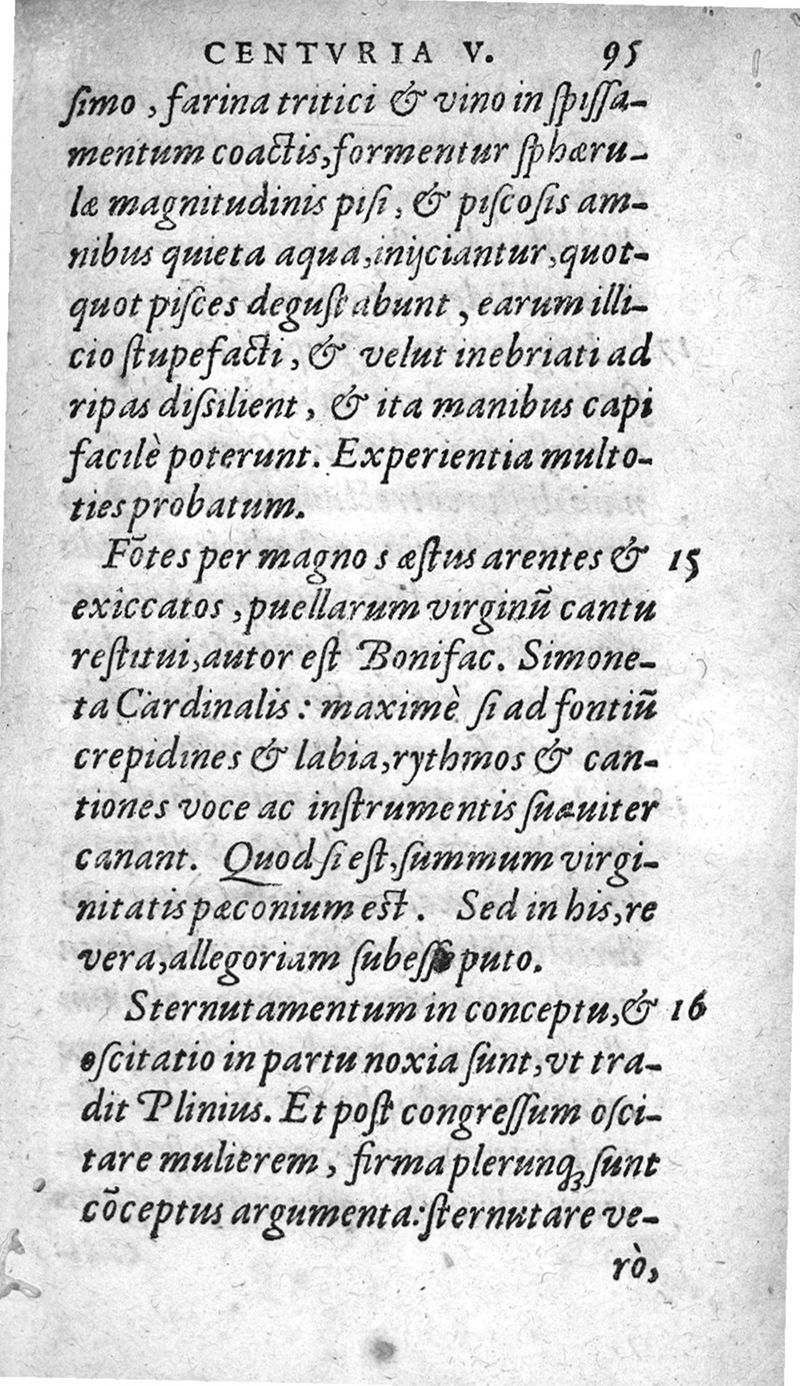 CENTVRIA V. 95
ſimo, farina tritici & vino in ſpiſſa-
mentum coactis, formentur ſphæru-
læ magnitudinis piſi, & piſcoſis am-
nibus quieta aqua, inijciantur, quot-
quot piſces deguſtabunt, earum illi-
cio ſtupefacti, & velut inebriati ad
ripas diſsilient, & ita manibus capi
facilè poterunt. Experientia multo-
ties probatum.
Fōtes per magnos æſtus arentes & 15
exiccatos, puellarum virginū cantu
reſtitui, autor eſt Bonifac. Simone-
ta Cardinalis: maximè ſi ad fontiū
crepidines & labia, rythmos & can-
tiones voce ac inſtrumentis ſuauiter
canant. Quod ſi eſt, ſummum virgi-
nitatis pæconium eſt. Sed in his, re
vera, allegoriam ſubeſſe puto.
Sternutamentum in conceptu, & 16
oſcitatio in partu noxia ſunt, vt tra-
dit Plinius. Et poſt congreſſum oſci-
tare mulierem, firma plerunq; ſunt
cōceptus argumenta: ſternutare ve-
rò,